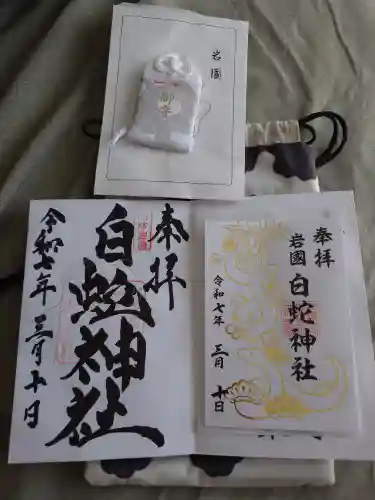 岩國
御守
奉拝
白蛇神社
令和七年 三月十日
奉拝
岩國
白蛇神社
令和七年 三月 十日